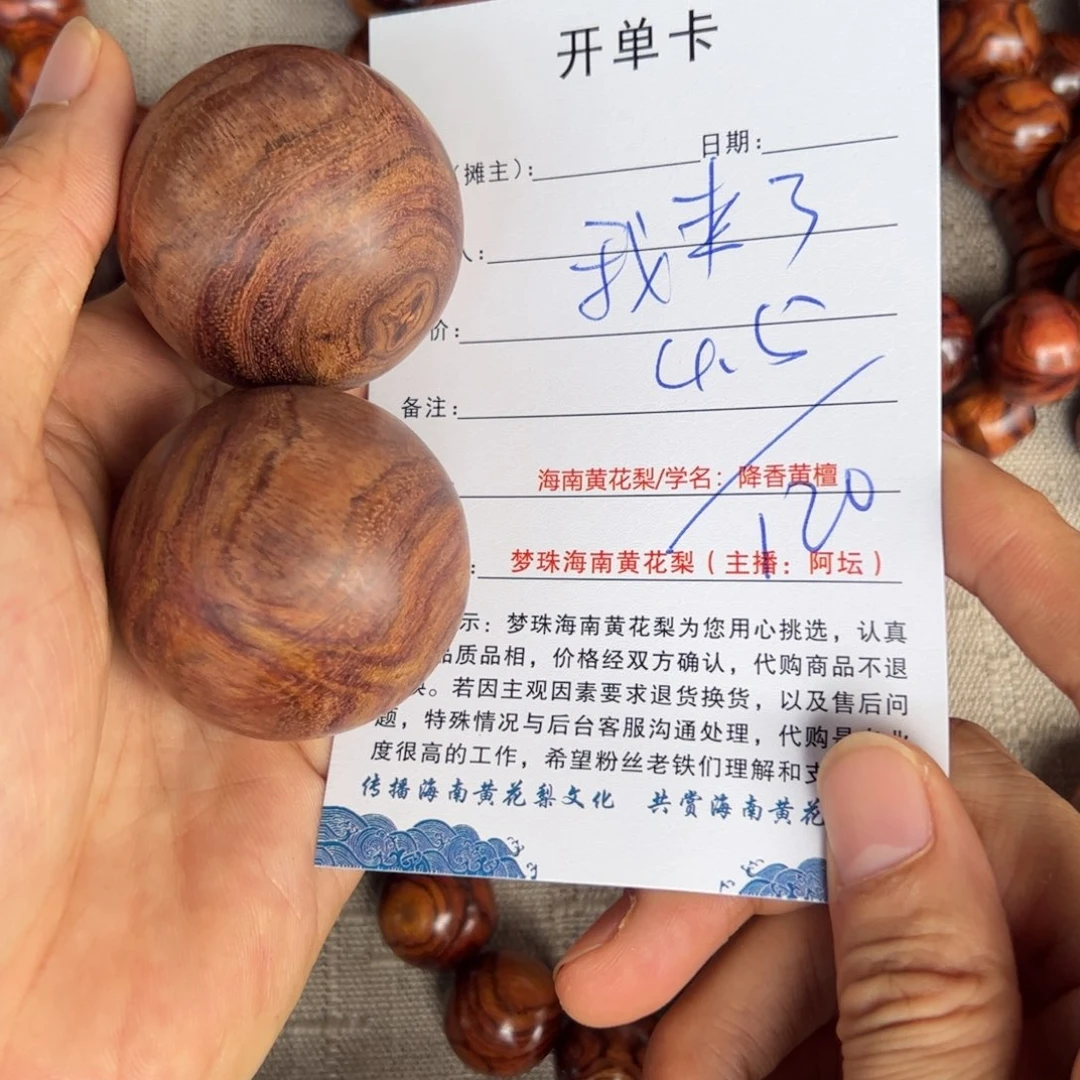 开单卡
（摊主）：
日期：
人：
我来了
价：
4.5
备注：
海南黄花梨/学名：降香黄檀
120
梦珠海南黄花梨（主播：阿坛）
示：梦珠海南黄花梨为您用心挑选，认真
品质品相，价格经双方确认，代购商品不退
换。若因主观因素要求退货换货，以及售后问
题，特殊情况与后台客服沟通处理，代购是
度很高的工作，希望粉丝老铁们理解和支
传播海南黄花梨文化 共赏海南黄花